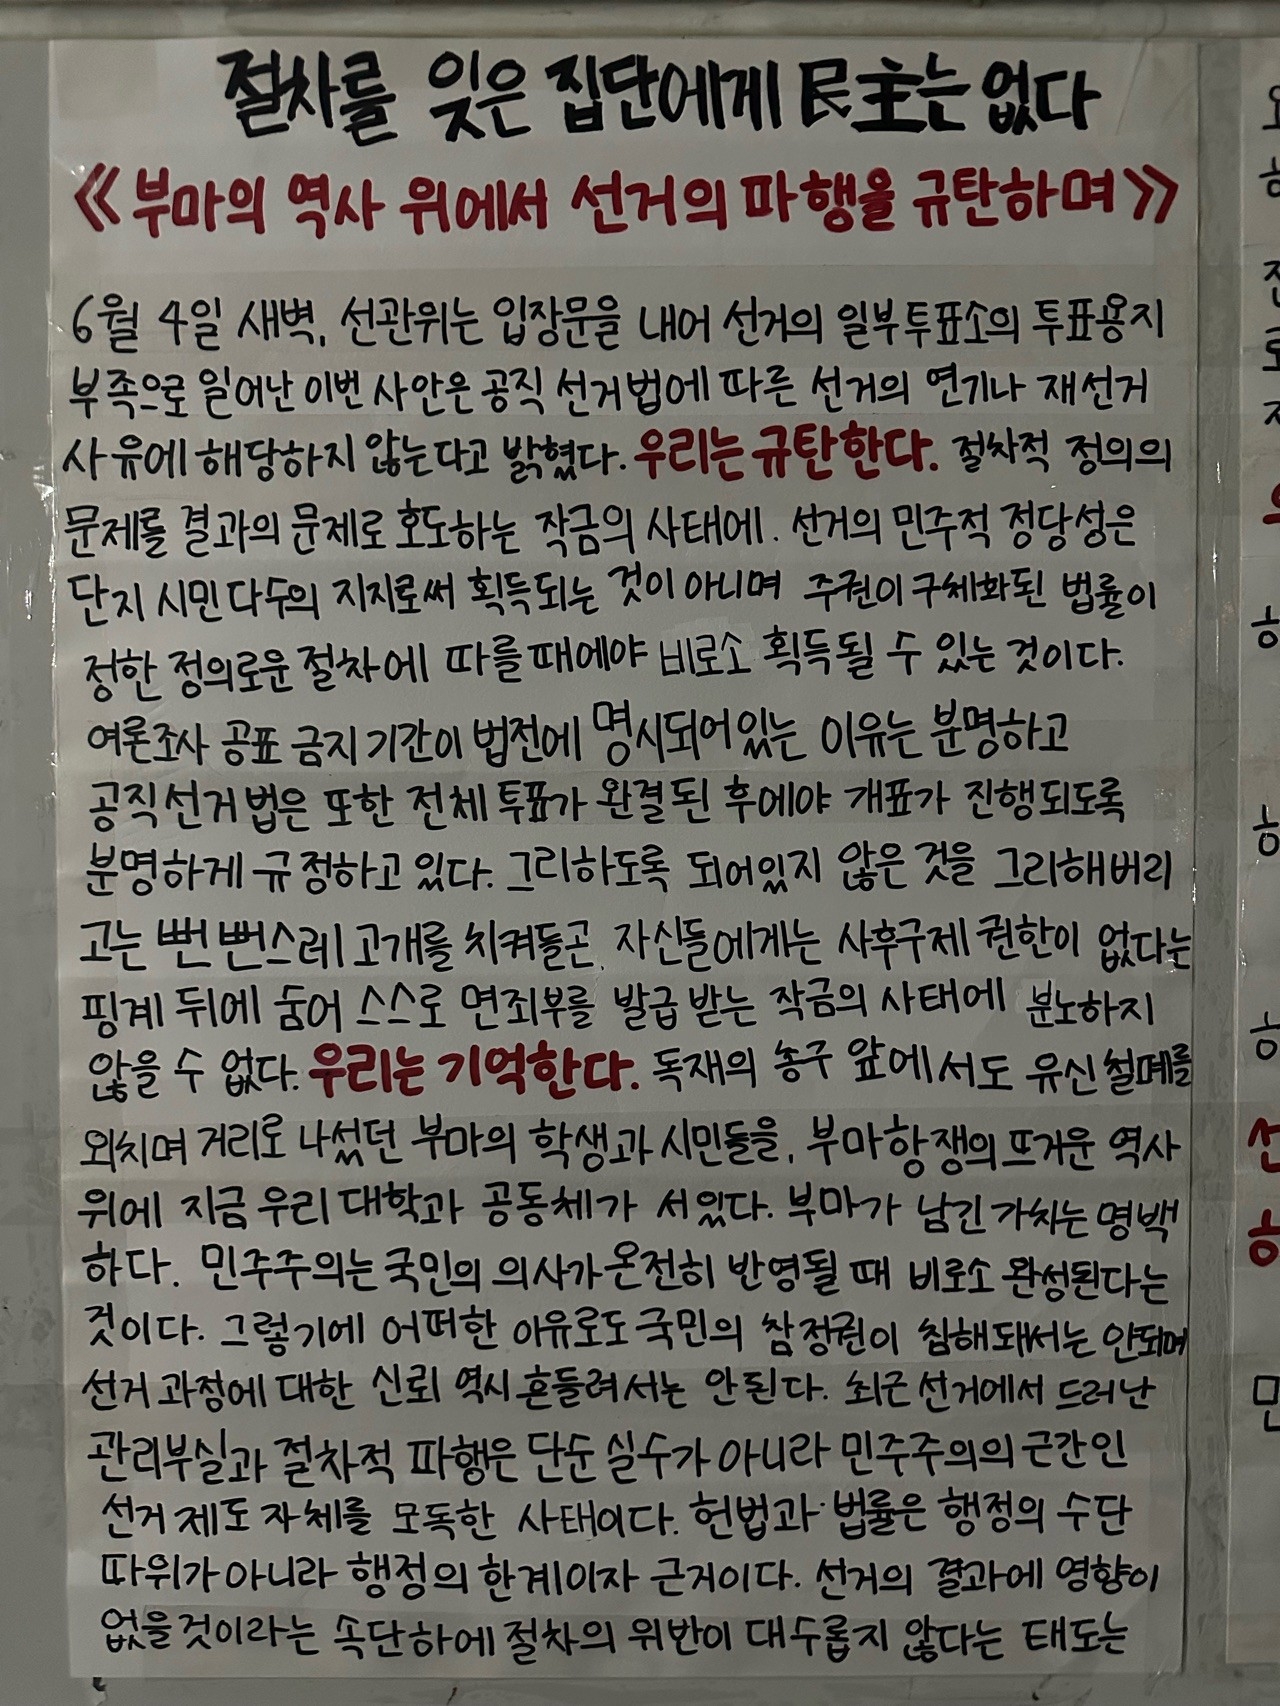 절차를 잊은 집단에게 民主는 없다
《부마의 역사 위에서 선거의 파행을 규탄하며》
6월 4일 새벽, 선관위는 입장문을 내어 선거의 일부투표소의 투표용지
부족으로 일어난 이번 사안은 공직 선거법에 따른 선거의 연기나 재선거
사유에 해당하지 않는다고 밝혔다. 우리는 규탄한다. 절차적 정의의
문제를 결과의 문제로 호도하는 작금의 사태에. 선거의 민주적 정당성은
단지 시민 다수의 지지로써 획득되는 것이 아니며 주권이 구체화된 법률이
정한 정의로운 절차에 따를 때에야 비로소 획득될 수 있는 것이다.
여론조사 공표 금지 기간이 법전에 명시되어있는 이유는 분명하고
공직선거법은 또한 전체 투표가 완결된 후에야 개표가 진행되도록
분명하게 규정하고 있다. 그리하도록 되어있지 않은 것을 그리해버리
고는 뻔뻔스레 고개를 치켜들곤, 자신들에게는 사후구제 권한이 없다는
핑계 뒤에 숨어 스스로 면죄부를 발급 받는 작금의 사태에 분노하지
않을 수 없다. 우리는 기억한다. 독재의 총구 앞에서도 유신 철폐를
외치며 거리로 나섰던 부마의 학생과 시민들을, 부마항쟁의 뜨거운 역사
위에 지금 우리 대학과 공동체가 서있다. 부마가 남긴 가치는 명백
하다. 민주주의는 국민의 의사가 온전히 반영될 때 비로소 완성된다는
것이다. 그렇기에 어떠한 이유로도 국민의 참정권이 침해돼서는 안되며
선거 과정에 대한 신뢰 역시 흔들려서는 안된다. 최근 선거에서 드러난
관리부실과 절차적 파행은 단순 실수가 아니라 민주주의의 근간인
선거 제도 자체를 모독한 사태이다. 헌법과 법률은 행정의 수단
따위가 아니라 행정의 한계이자 근거이다. 선거의 결과에 영향이
없을것이라는 속단하에 절차의 위반이 대수롭지 않다는 태도는